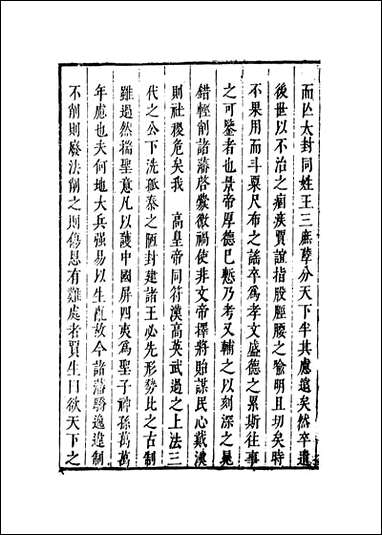 而亾大封同姓王三庶孽分天下半其慮遠矣然卒遺
後世以不治之痼疾賈誼指股脛腰之喻明且切矣時
不果用而斗粟尺布之謡卒爲孝文盛德之累斯往事
之可鑒者也景帝厚德已慙乃考又輔之以刻深之晁
錯輕削諸藩啓釁微禍使非文帝擇將貽謀民心戴漢
則社稷危矣我　高皇帝同符漢高英武過之上法三
代之公下洗孤秦之陋封建諸王必先形勢比之古制
雖過然揣聖意凡以護中國屏四夷爲聖子神孫萬萬
年慮也夫何地大兵强易以生亂故今諸藩驕逸違制
不削則廢法削之則傷恩有難處者賈生曰欲天下之